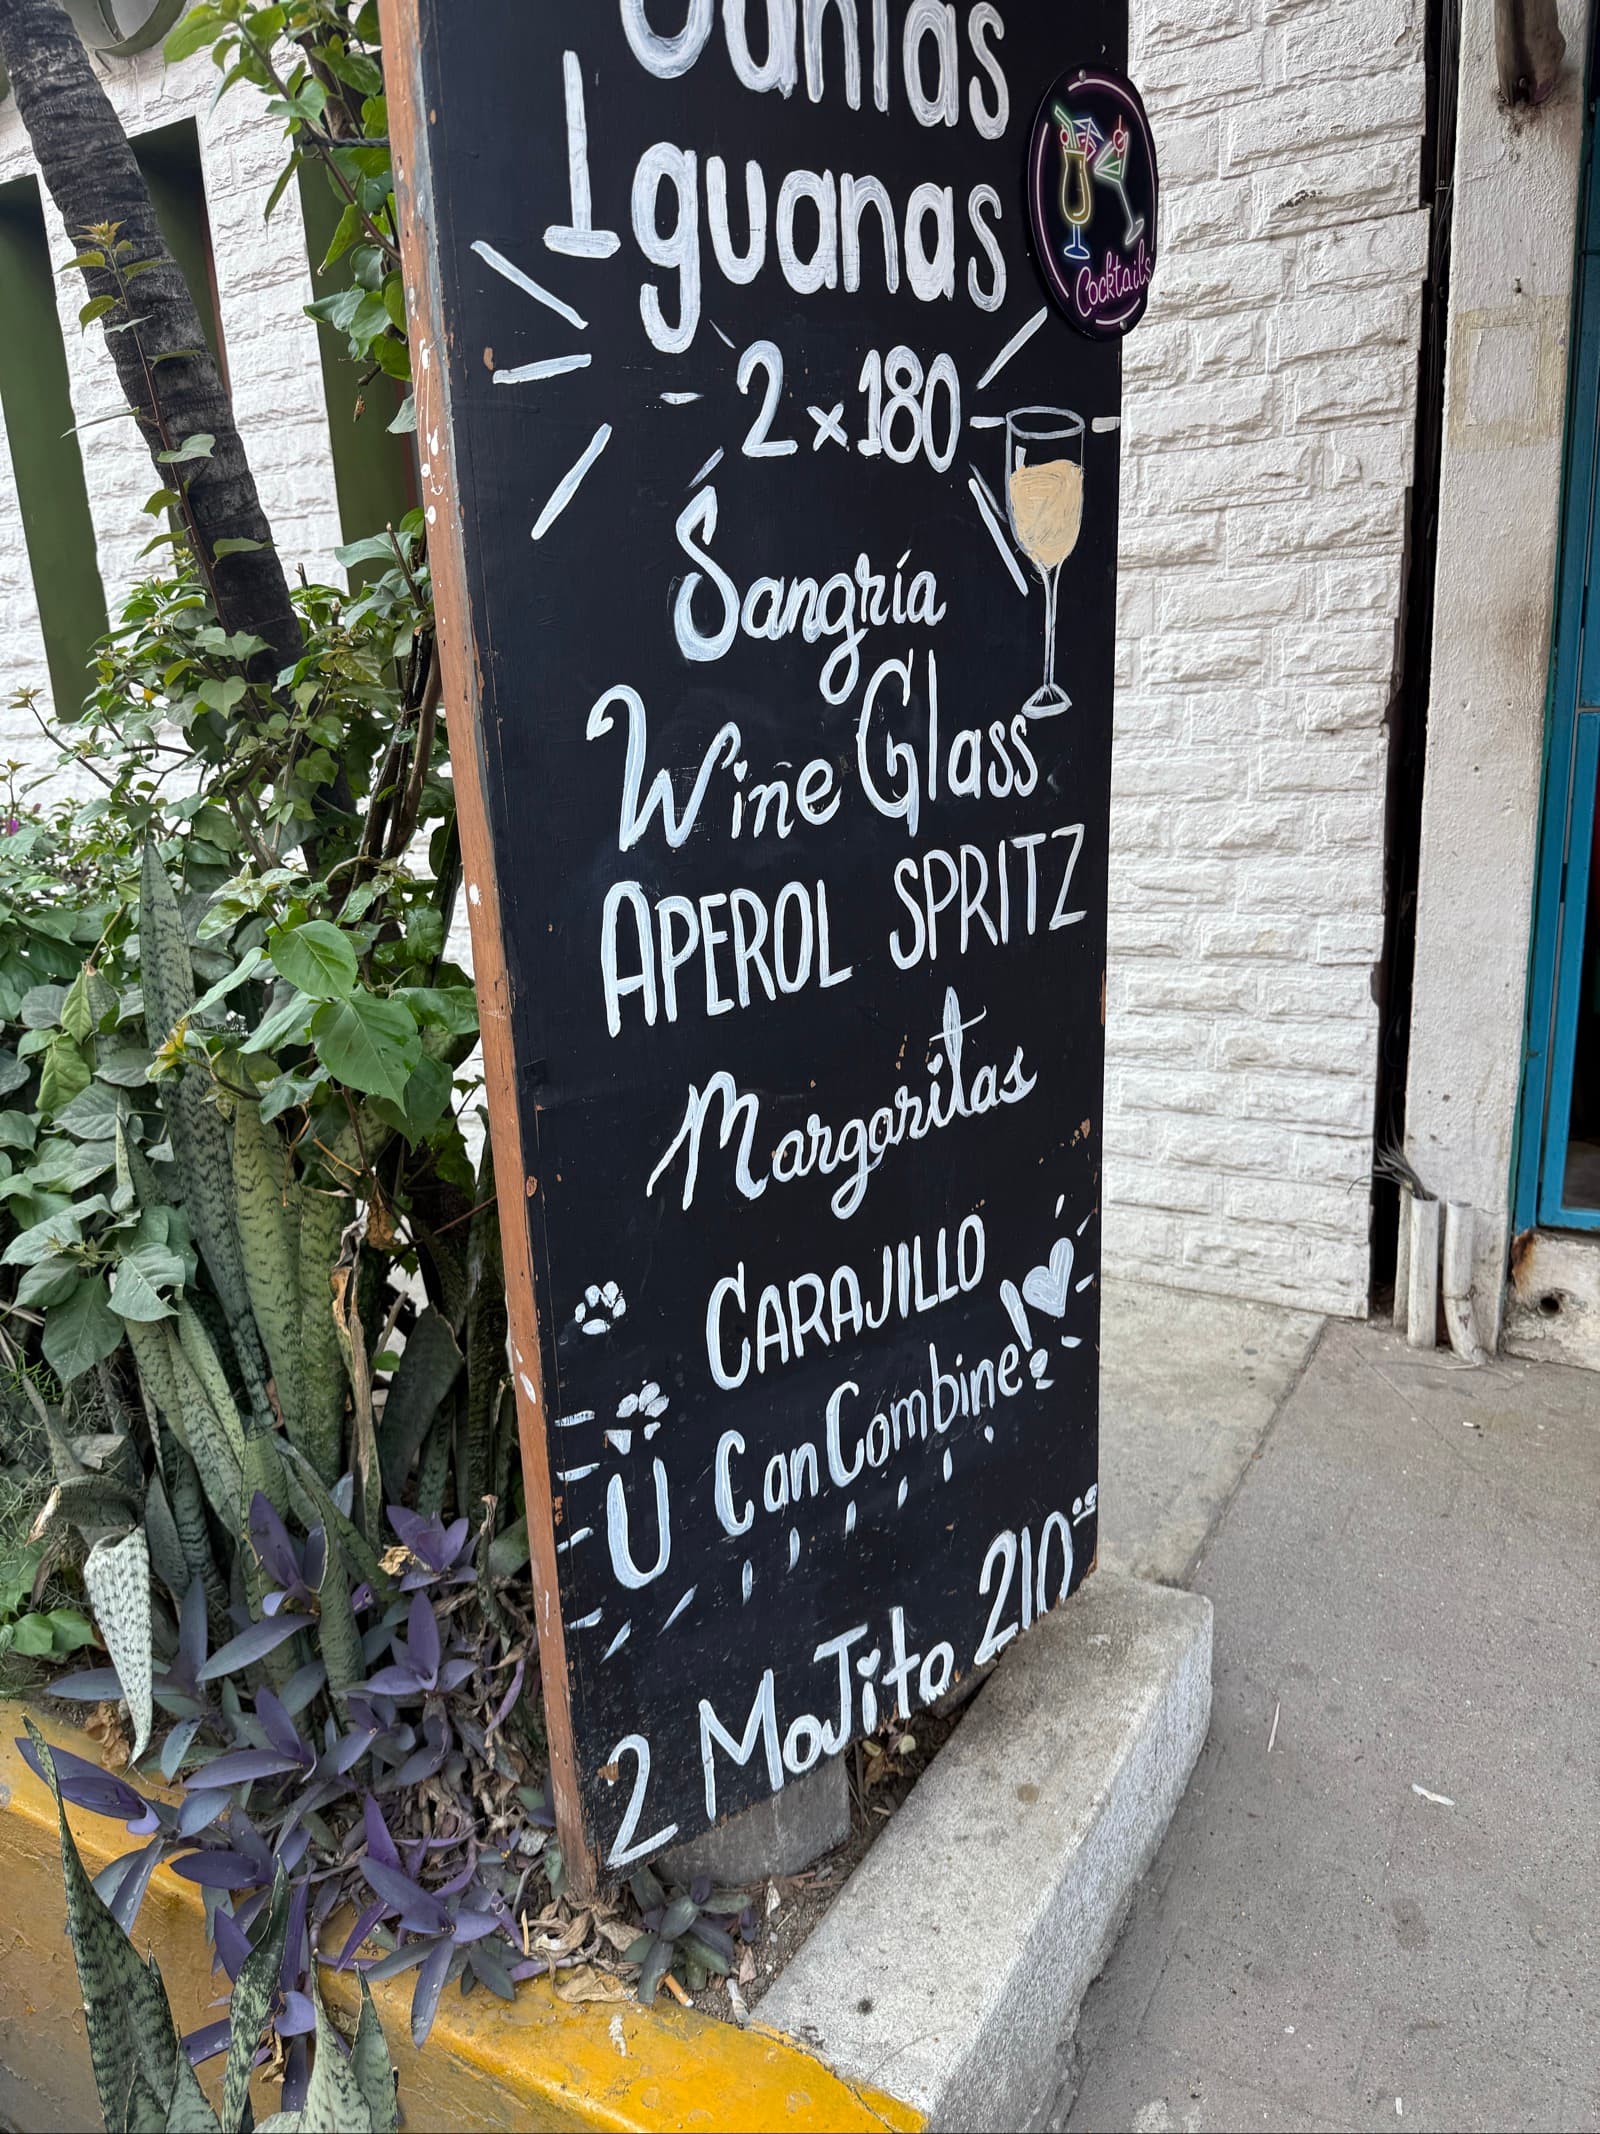 Iguanas
Cocktails
2x180
Sangría
Wine Glass
APEROL SPRITZ
Margaritas
CARAJILLO
U Can Combine!
2 MoJito 210.00